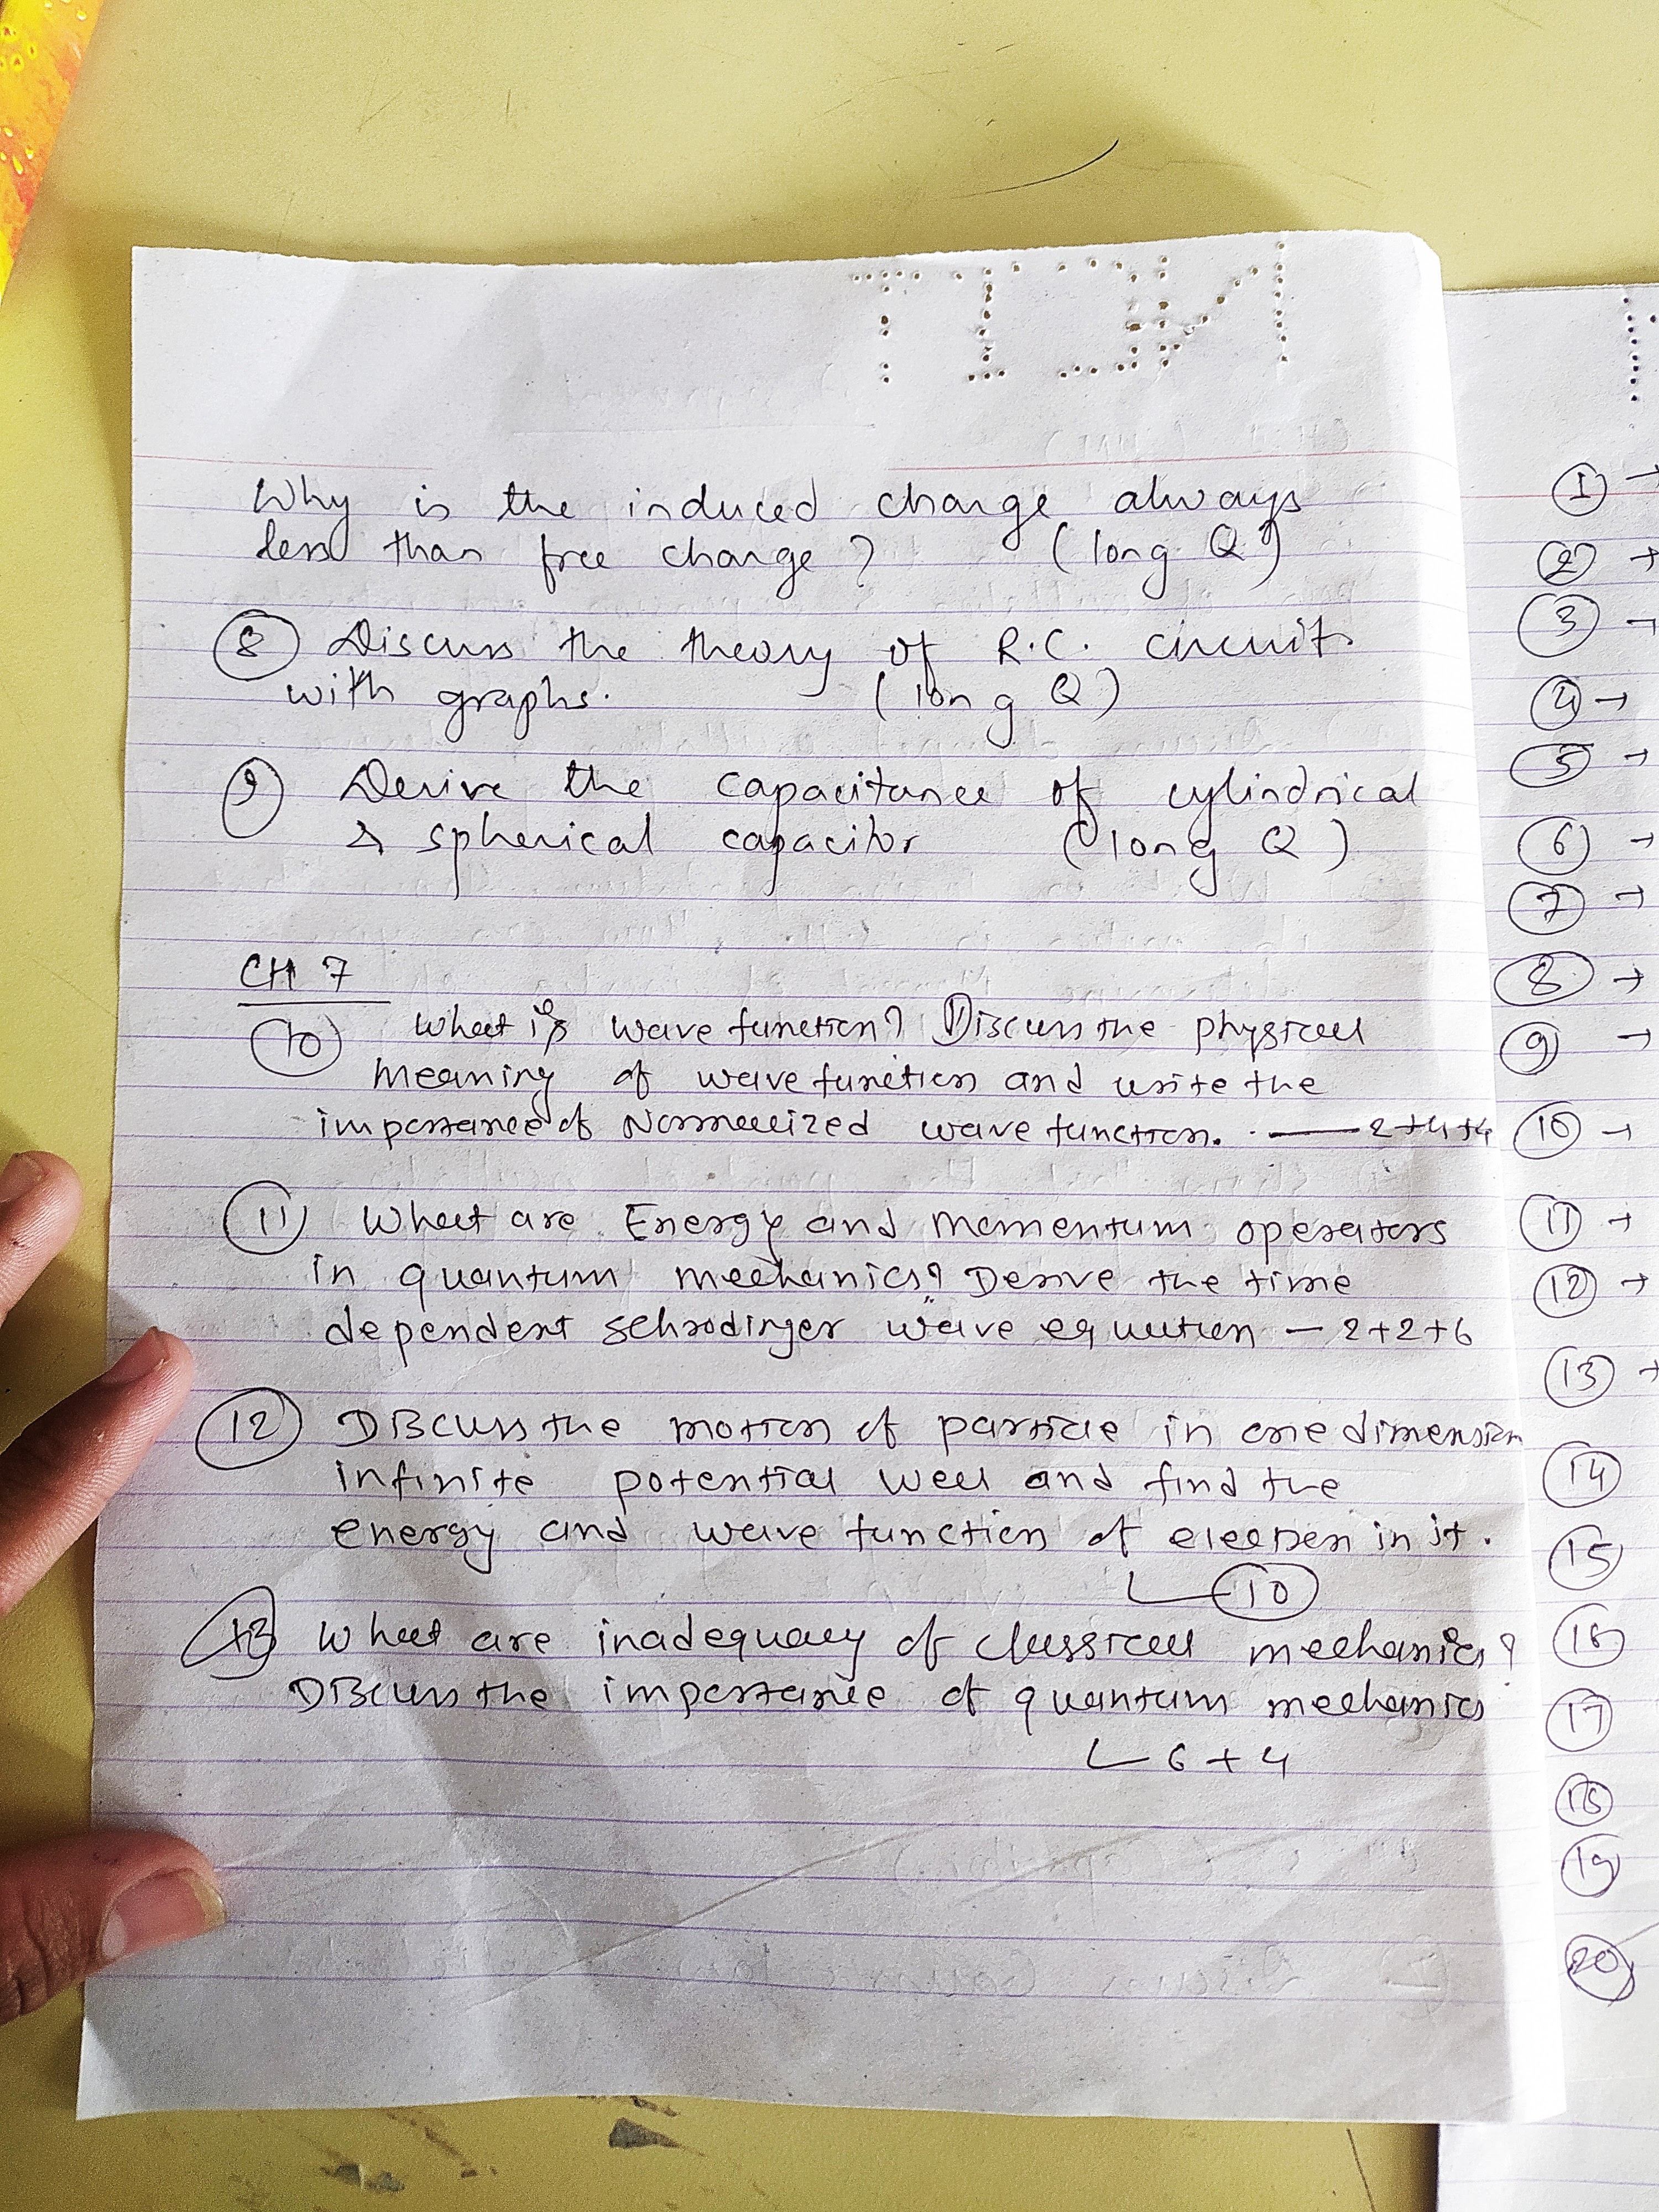 Why is the induced charge always
less than free charge? (long Q)
8 Discuss the theory of R.C. circuit
with graphs. (long Q)
9 Derive the capacitance of cylindrical
& spherical capacitor (long Q)
CH 7
10 What is wave function? Discuss the physical
meaning of wave function and write the
importance of Normalized wave function. — 2+4+4
11 What are Energy and momentum operators
in quantum mechanics? Derive the time
dependent schrodinger wave equation — 2+2+6
12 Discuss the motion of particle in one dimension
infinite potential well and find the
energy and wave function of electron in it.
10
13 What are inadequacy of classical mechanics?
Discuss the importance of quantum mechanics
6 + 4
1 →
2 →
3 →
4 →
5 →
6 →
7 →
8 →
9 →
10 →
11 →
12 →
13 →
14
15
16
17
18
19
20